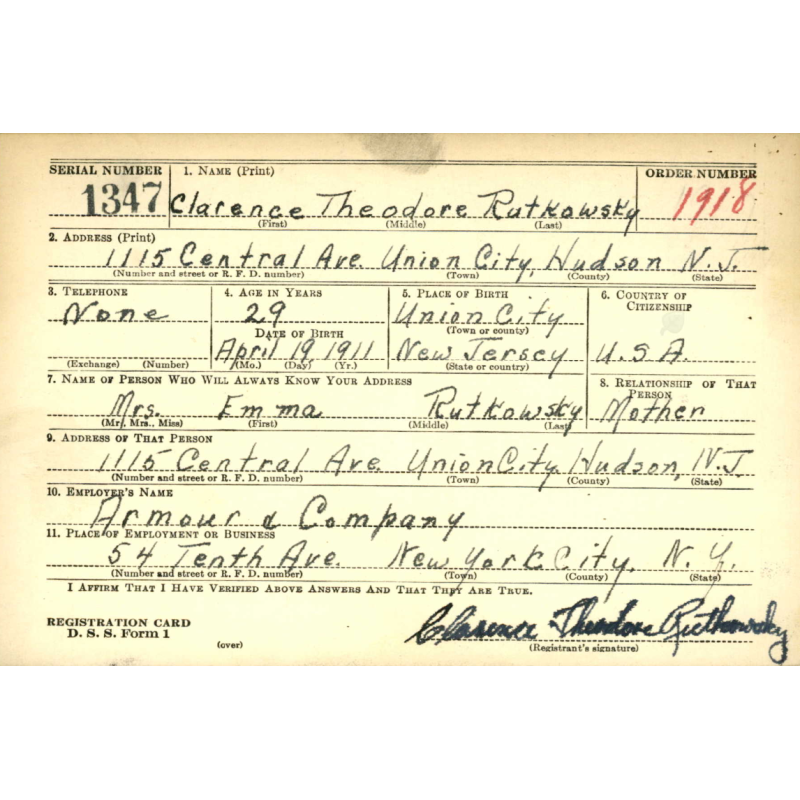 SERIAL NUMBER 1. NAME (Print) ORDER NUMBER
1347 Clarence Theodore Rutkowsky 1918
(First) (Middle) (Last)
2. ADDRESS (Print)
1115 Central Ave. Union City, Hudson N.J.
(Number and street or R. F. D. number) (Town) (County) (State)
3. TELEPHONE 4. AGE IN YEARS 5. PLACE OF BIRTH 6. COUNTRY OF
CITIZENSHIP
None 29 Union City
DATE OF BIRTH (Town or county)
April 19, 1911 New Jersey U.S.A.
(Exchange) (Number) (Mo.) (Day) (Yr.) (State or country)
7. NAME OF PERSON WHO WILL ALWAYS KNOW YOUR ADDRESS 8. RELATIONSHIP OF THAT
PERSON
Mrs. Emma Rutkowsky Mother
(Mr., Mrs., Miss) (First) (Middle) (Last)
9. ADDRESS OF THAT PERSON
1115 Central Ave. Union City. Hudson, N.J.
(Number and street or R. F. D. number) (Town) (County) (State)
10. EMPLOYER'S NAME
Armour & Company
11. PLACE OF EMPLOYMENT OR BUSINESS
54 Tenth Ave. New York City. N.Y.
(Number and street or R. F. D. number) (Town) (County) (State)
I AFFIRM THAT I HAVE VERIFIED ABOVE ANSWERS AND THAT THEY ARE TRUE.
REGISTRATION CARD
D. S. S. Form 1 Clarence Theodore Rutkowsky
(over) (Registrant's signature)